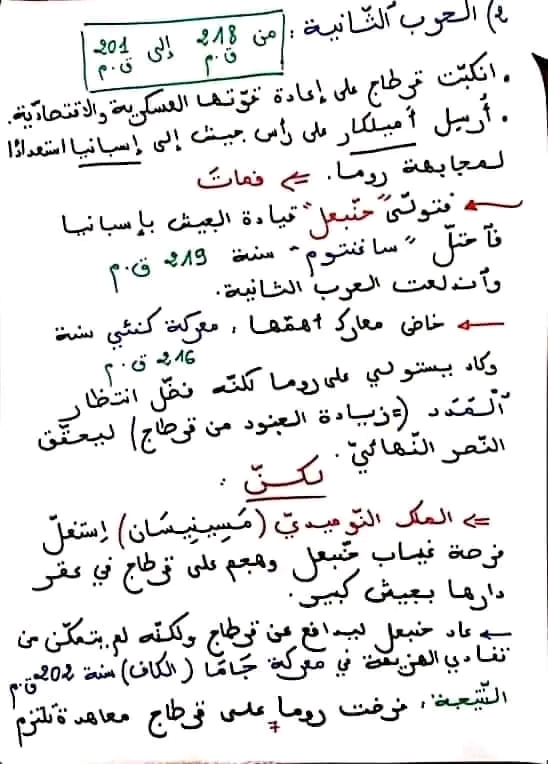 2) الحرب الثّانية : من 218 ق.م إلى 201 ق.م
. انكبّت قرطاج على إعادة قوّتها العسكرية والاقتصاديّة.
. أرسل أميلكار على رأس جيش إلى إسبانيا استعدادًا
لمجابهة روما. ⇐ فمات
← فتولّى "حنّبعل" قيادة الجيش بإسبانيا
فٱحتلّ "ساغنتوم" سنة 219 ق.م
وٱندلعت الحرب الثانية.
← خاض معارك أهمّها : معركة كنّئي سنة
216 ق.م
وكاد يستولي على روما لكنّه فضّل انتظار
ٱلْمَدَد (= زيادة الجنود من قرطاج) ليحقّق
النّصر النّهائيّ.
لكنّ :
⇐ الملك النّوميديّ (مَسِينِيسَان) إستغلّ
فرصة غياب حنّبعل وهجم على قرطاج في عقر
دارها بجيش كبير.
← عاد حنبعل ليدافع عن قرطاج ولكنّه لم يتمكّن من
تفادي الهزيمة في معركة جَامَا (الكاف) سنة 202 ق.م
النّتيجة : فرضت روما على قرطاج معاهدة تلتزم
7